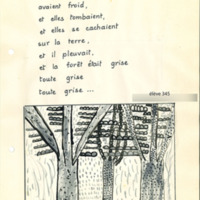 avaient froid,
et elles tombaient,
et elles se cachaient
sur la terre,
et il pleuvait,
et la forêt était grise
toute grise
toute grise ...
élève 345